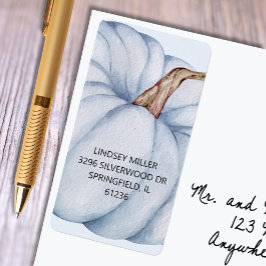 LINDSEY MILLER
3296 SILVERWOOD DR
SPRINGFIELD, IL
61236
Mr. and
123
Anywhe